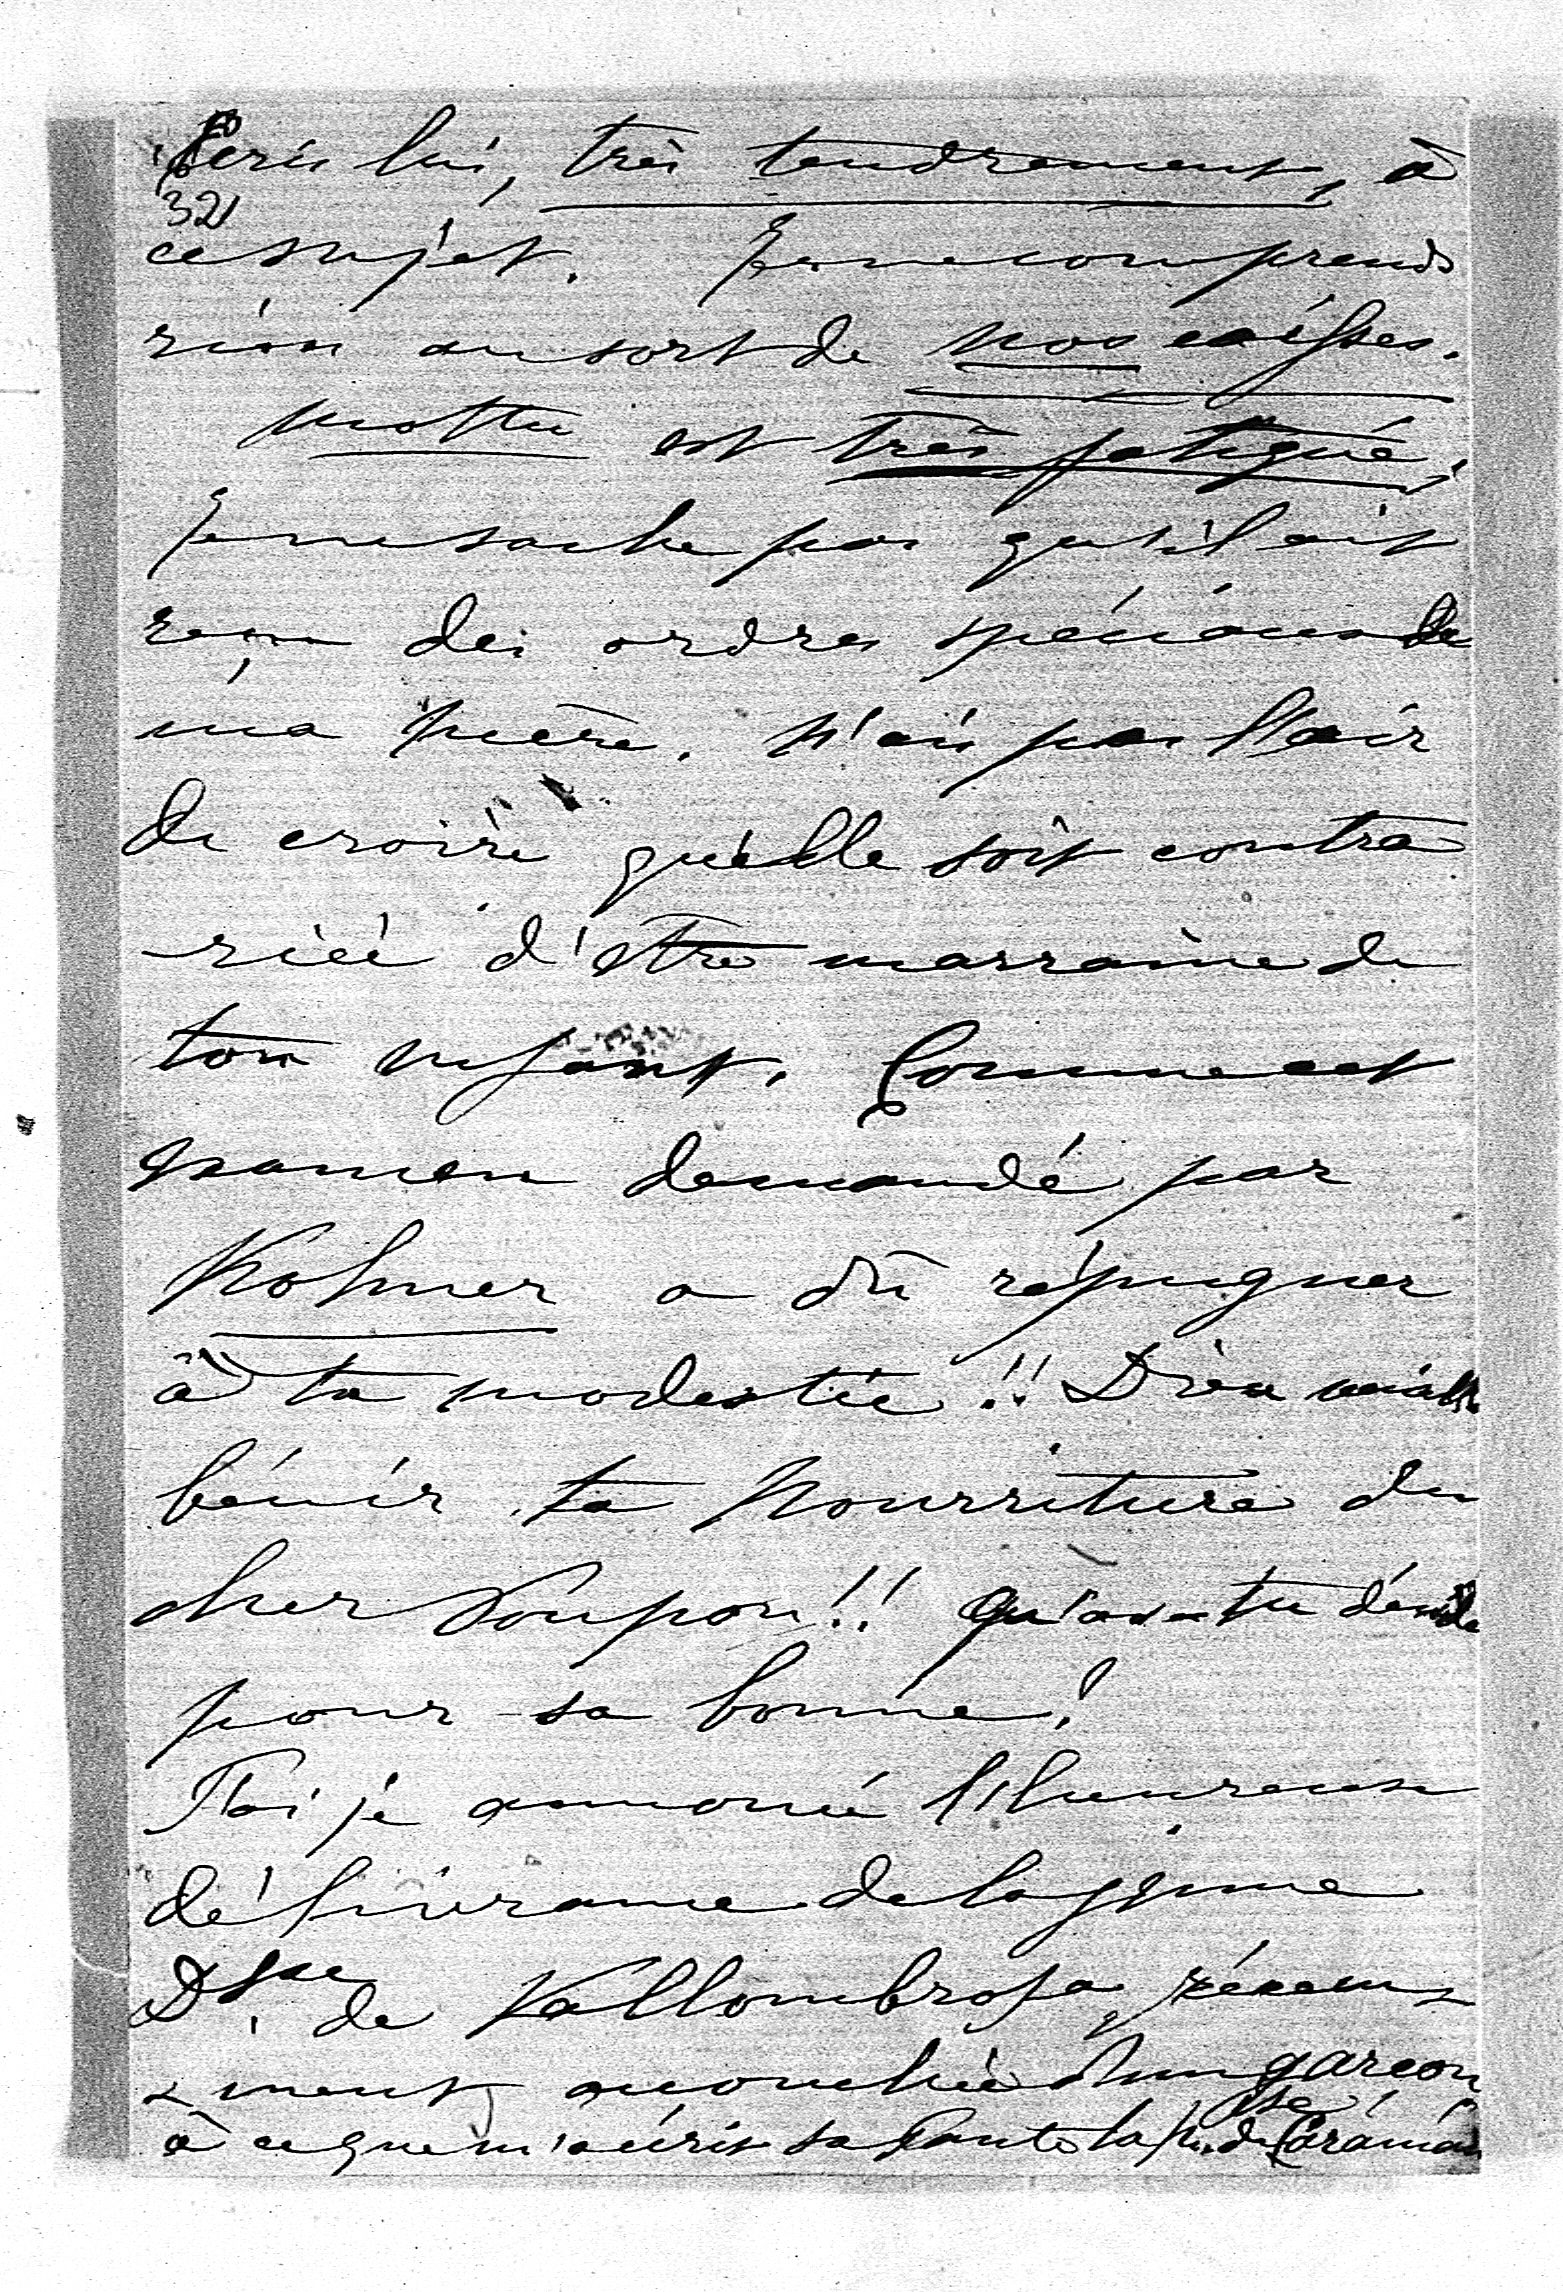 Ecris lui, très tendrement, à
321
ce sujet. Je ne comprends
rien au sort de nos caisses.
Mottu est très fatigué,
Je ne sache pas qu'il ait
reçu des ordres spéciaux de
ma mère. N'aie pas l'air
de croire qu'elle soit contra
-riée d'être marraine de
ton enfant. Comme cet
examen demandé par
Kolmer a dû répugner
à ta modestie!! Dieu veuille
bénir ta nourriture du
cher Poupon!! Qu'as-tu décidé
pour sa bonne?
T'ai je annoncé l'heureuse
délivrance de la jeune
Dsse. de Vallombrosa, récem
-ment accouchée d'un garçon
à ce que m'a écrit sa tante la Psse. de Caraman